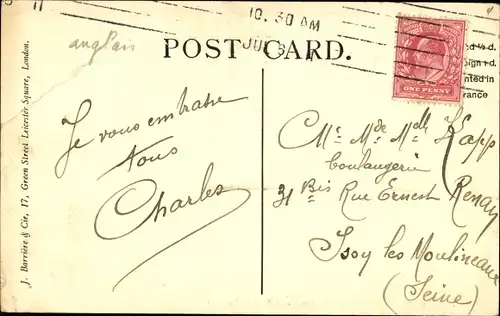 10.30 AM
JU
anglais
POST CARD.
ONE PENNY
d ½d.
ign+d.
nted in
rance
J. Barrière & Cie, 17, Green Street Leicester Square, London.
Je vous embrasse
tous
Charles
Mr Mde Melle Kapp
boulangerie
31 Bis Rue Ernest Renan
Issy les Moulineaux
(Seine)